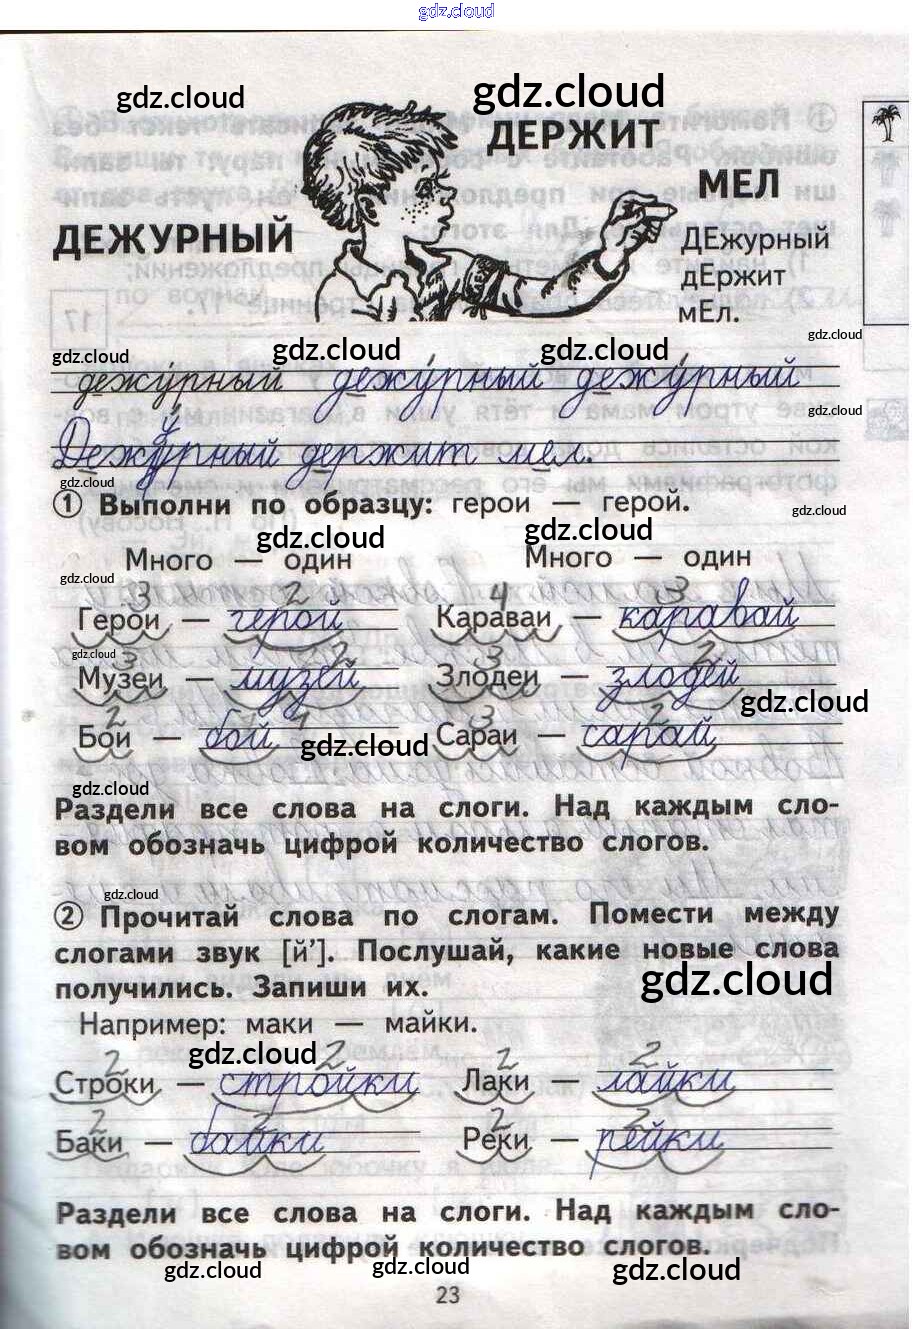 gdz.cloud
gdz.cloud
gdz.cloud
ДЕРЖИТ
МЕЛ
ДЕЖУРНЫЙ
ДЕжурный
дЕржит
мЕл.
17
gdz.cloud
gdz.cloud gdz.cloud gdz.cloud
дежу́рный дежу́рный дежу́рный
gdz.cloud
Дежу́рный держит мел.
gdz.cloud
① Выполни по образцу: герои — герой.
gdz.cloud
gdz.cloud gdz.cloud
Много — один Много — один
gdz.cloud
3 2 4 3
Герои — герой Караваи — каравай
gdz.cloud
3 2 3 2
Музеи — музей Злодеи — злодей
gdz.cloud
2 1 3 2
Бои — бой Сараи — сарай
gdz.cloud
gdz.cloud
Раздели все слова на слоги. Над каждым сло-
вом обозначь цифрой количество слогов.
gdz.cloud
② Прочитай слова по слогам. Помести между
слогами звук [й’]. Послушай, какие новые слова
получились. Запиши их.
gdz.cloud
Например: маки — майки.
gdz.cloud
2 2 2 2
Строки — стройки Лаки — лайки
2 2 2 2
Баки — байки Реки — рейки
Раздели все слова на слоги. Над каждым сло-
вом обозначь цифрой количество слогов.
gdz.cloud gdz.cloud gdz.cloud
23